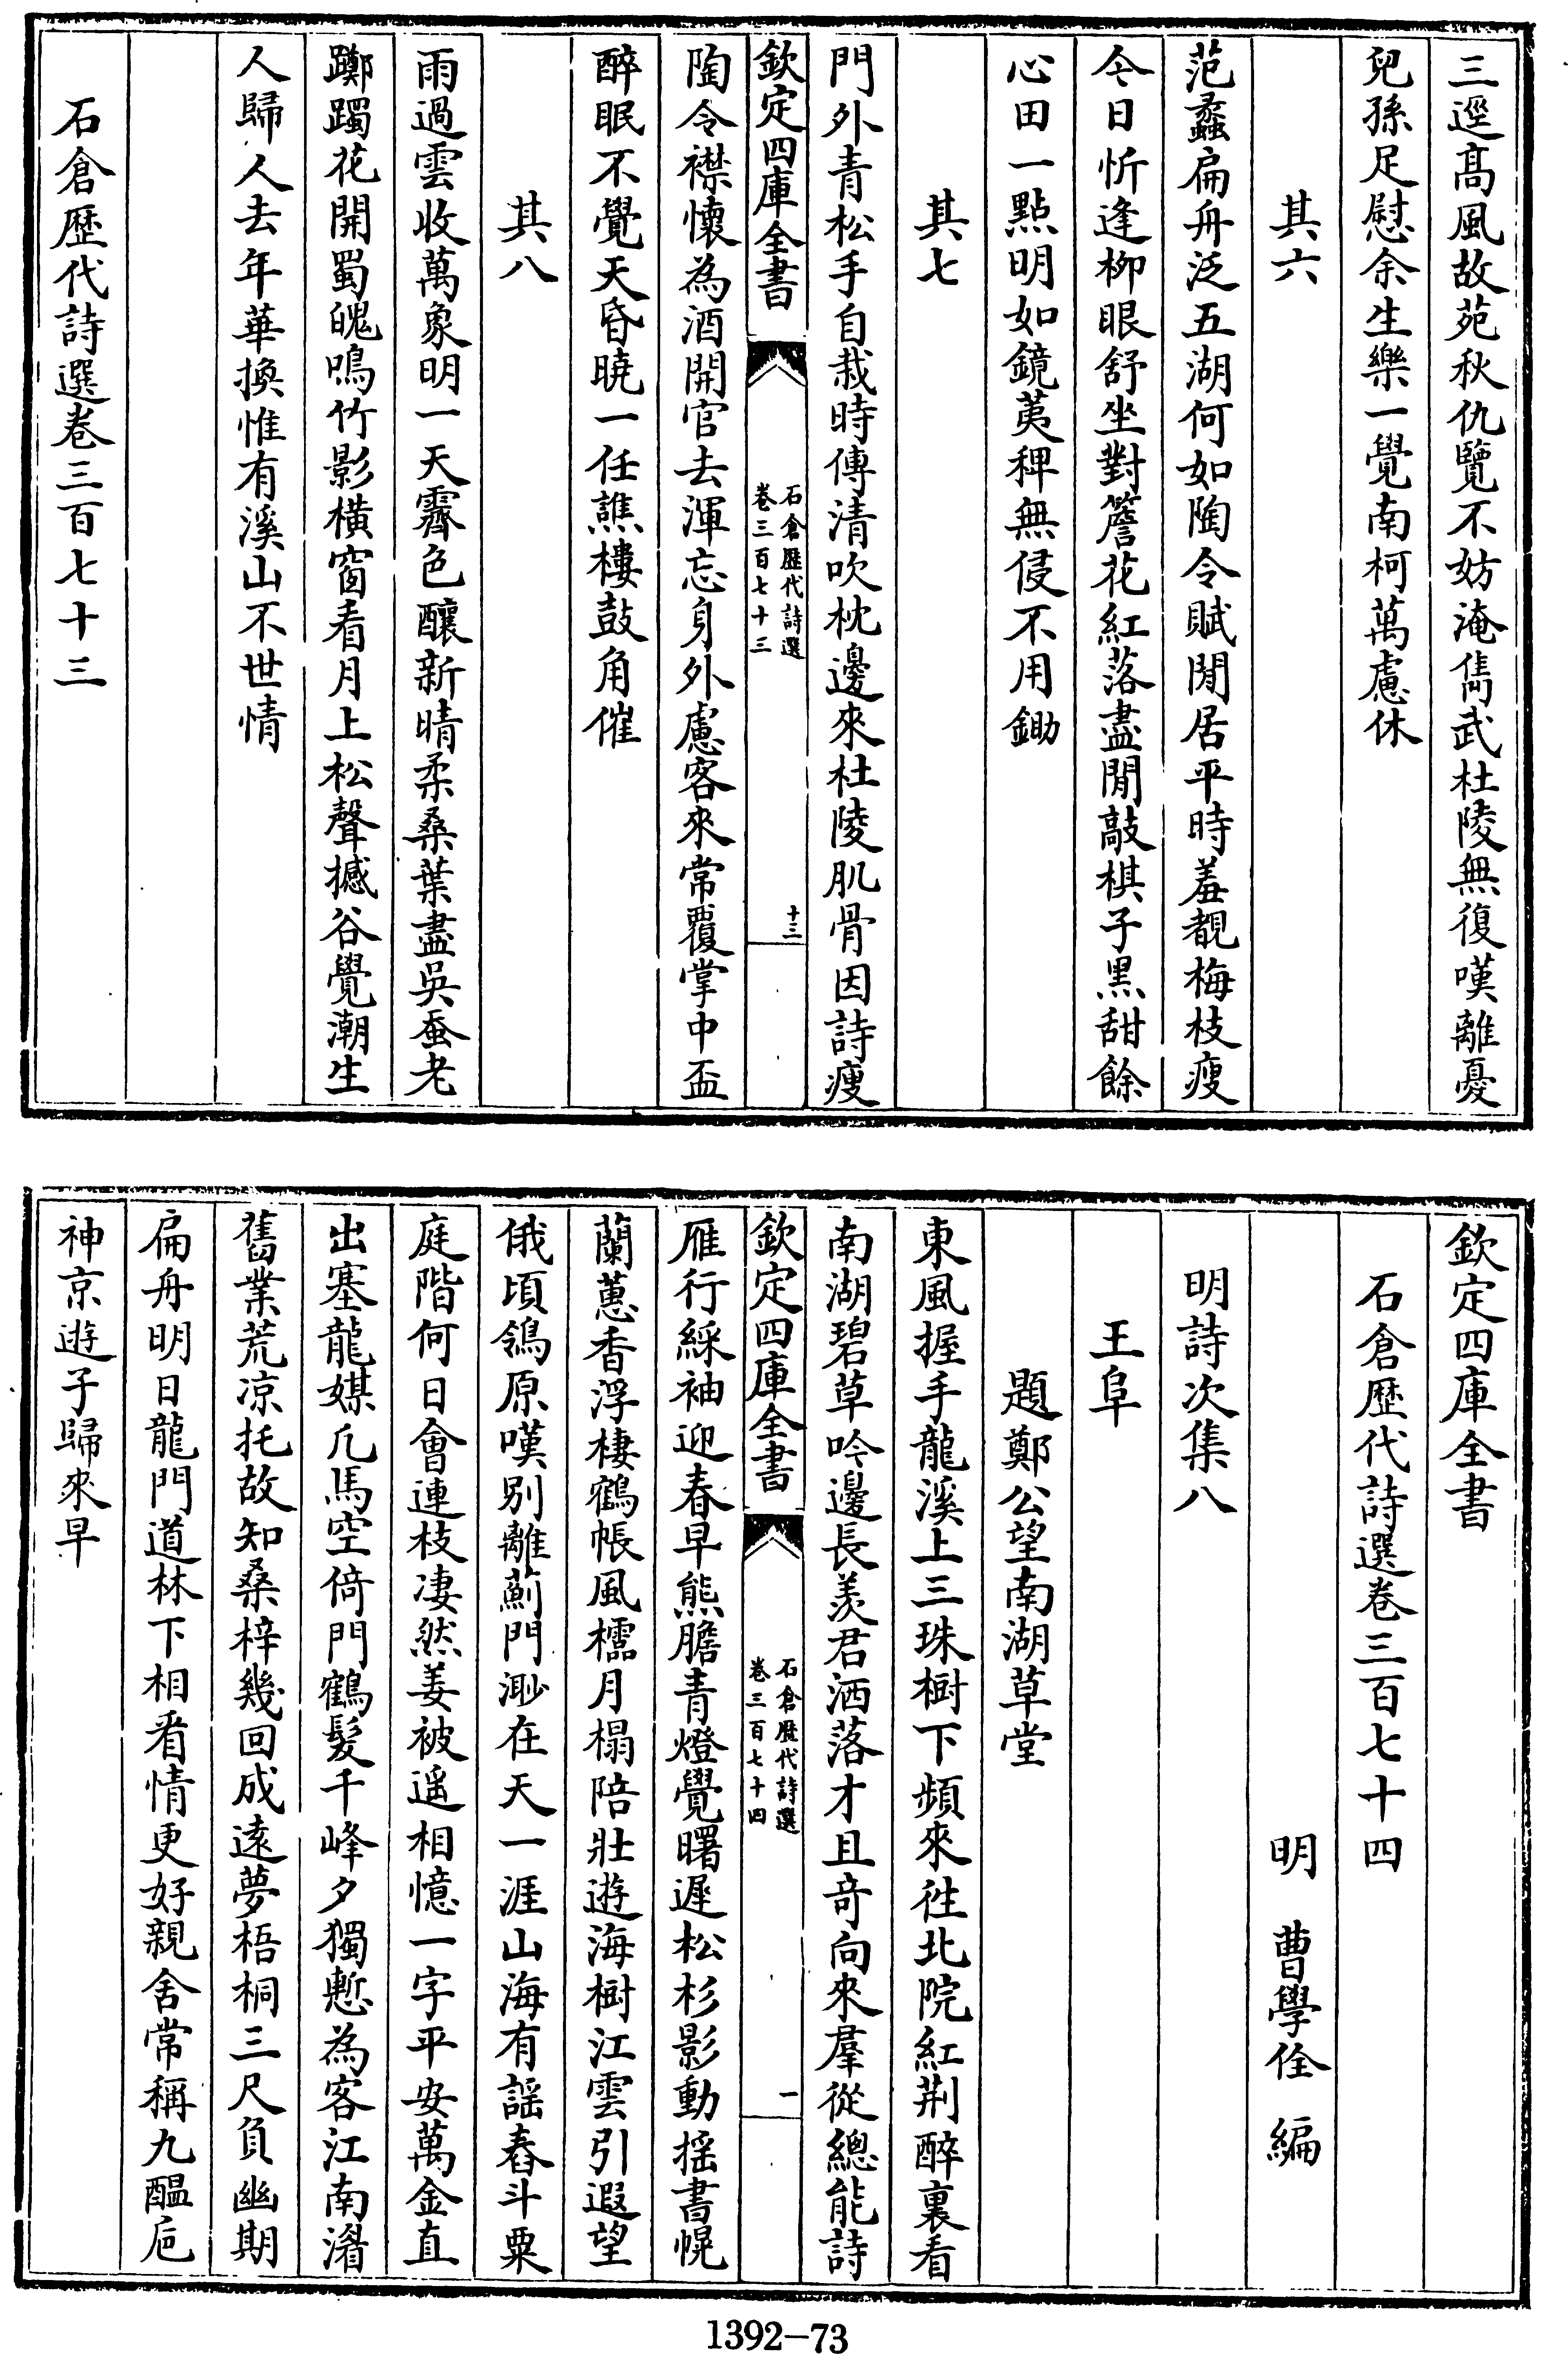 三逕髙風故苑秋仇覽不妨淹雋武杜陵無復嘆離憂
兒孫足慰余生樂一覺南柯萬慮休
其六
范蠡扁舟泛五湖何如陶令賦閒居平時羞覩梅枝瘦
今日忻逢栁眼舒坐對簷花紅落盡閒敲棋子黑甜餘
心田一點明如鏡荑稗無侵不用鋤
其七
門外青松手自栽時傳清吹枕邊來杜陵肌骨因詩瘦
欽定四庫全書
石倉歷代詩選
卷三百七十三
十三
陶令襟懷為酒開官去渾忘身外慮客來常覆掌中盃
醉眠不覺天昏曉一任譙樓鼓角催
其八
雨過雲收萬象明一天霽色釀新晴柔桑葉盡吳蚕老
躑躅花開蜀魄鳴竹影横窗看月上松聲撼谷覺潮生
人歸人去年華換惟有溪山不世情
石倉歷代詩選卷三百七十三
欽定四庫全書
石倉歷代詩選卷三百七十四
明 曹學佺 編
明詩次集八
王阜
題鄭公望南湖草堂
東風握手龍溪上三珠樹下頻來徃北院紅荆醉裏看
南湖碧草吟邊長羡君洒落才且竒向來羣從總能詩
欽定四庫全書
石倉歷代詩選
卷三百七十四
一
雁行綵袖迎春早熊膽青燈覺曙遲松杉影動揺書幌
蘭蕙香浮棲鶴帳風櫺月榻陪壯遊海樹江雲引遐望
俄頃鴒原嘆别離薊門渺在天一涯山海有謡舂斗粟
庭階何日會連枝凄然姜被遥相憶一字平安萬金直
出塞龍媒凢馬空倚門鶴髮千峰夕獨慙為客江南㵝
舊業荒凉托故知桑梓幾回成遠夢梧桐三尺負幽期
扁舟明日龍門道林下相看情更好親舍常稱九醞巵
神京遊子歸來早
1392-73